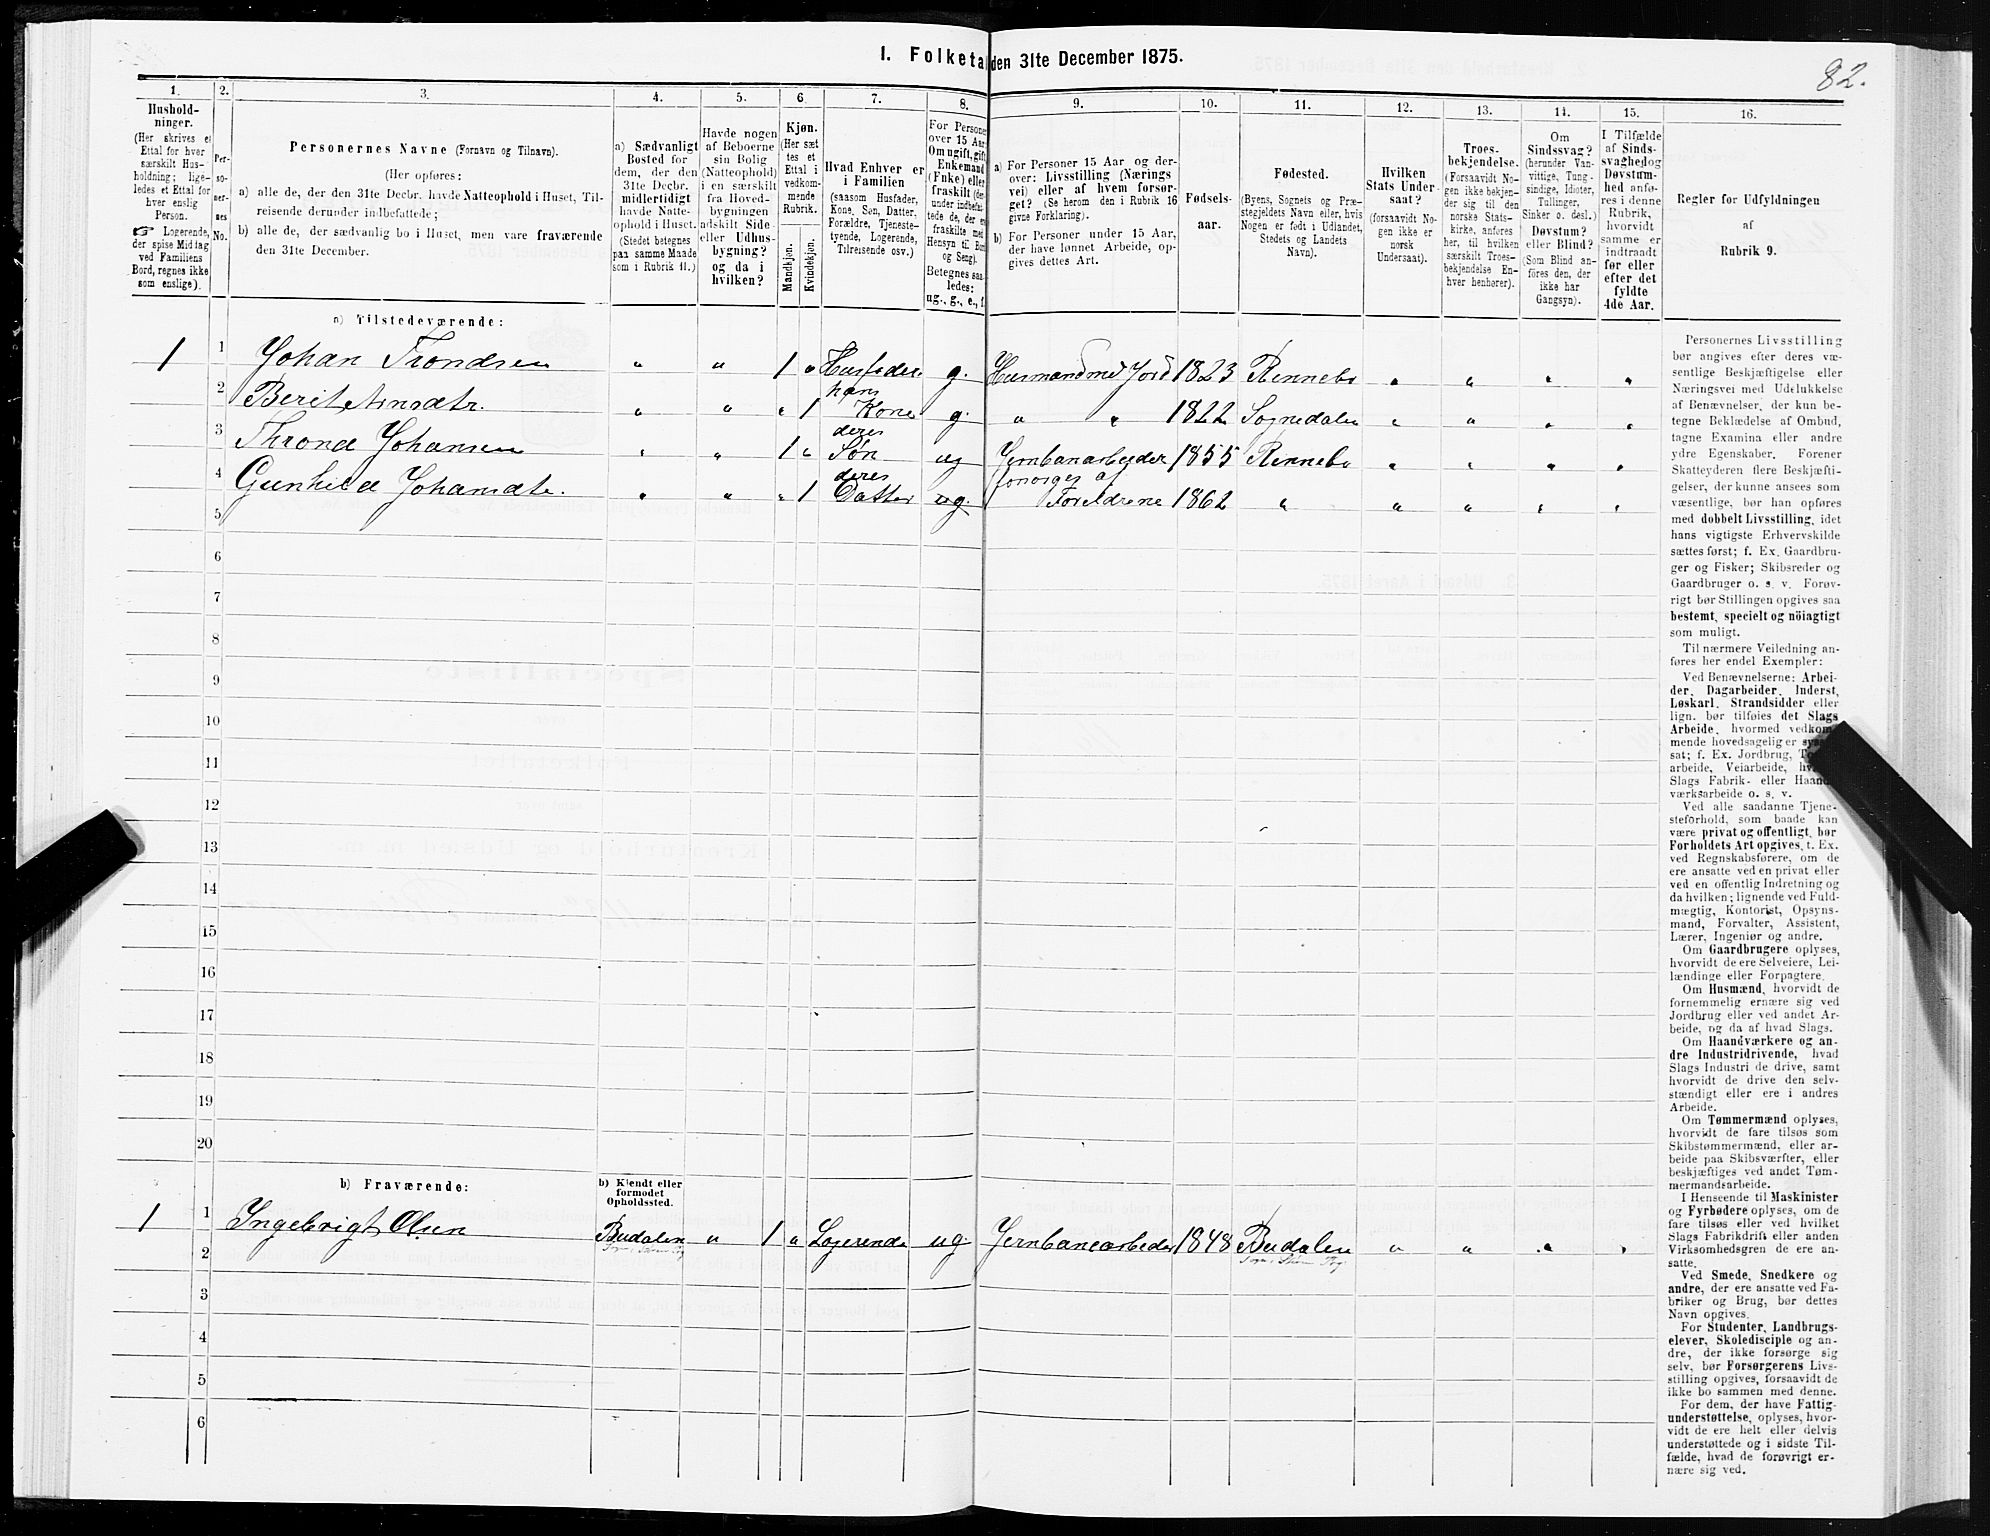 I. Folketal den 31te December 1875.
82.
1.
Hushold-
ninger.
(Her skrives et
Ettal for hver
særskilt Hus-
holdning; lige-
ledes et Ettal for
hver enslig
Person.
☞ Logerende,
der spise Middag
ved Familiens
Bord, regnes ikke
som enslige).
2.
Per-
so-
ner-
nes
No.
3.
Personernes Navne (Fornavn og Tilnavn).
(Her opføres:
a) alle de, der den 31te Decbr. havde Natteophold i Huset, Til-
reisende derunder indbefattede;
b) alle de, der sædvanlig bo i Huset, men vare fraværende
den 31te December.
4.
a) Sædvanligt
Bosted for
dem, der den
31te Decbr.
midlertidigt
havde Natte-
ophold i Huset.
(Stedet betegnes
paa samme Maade
som i Rubrik 11.)
5.
Havde nogen
af Beboerne
sin Bolig
(Natteophold)
i en særskilt
fra Hoved-
bygningen
adskilt Side-
eller Udhus-
bygning?
og da i
hvilken?
6.
Kjøn.
(Her sæt-
tes et
Ettal i
vedkom-
mende
Rubrik.
Mandkjøn.
Kvindekjøn.
7.
Hvad Enhver er
i Familien
(saasom Husfader,
Kone, Søn, Datter,
Forældre, Tjeneste-
tyende, Logerende,
Tilreisende osv.)
8.
For Personer
over 15 Aar:
Om ugift, gift,
Enkemand
(Enke) eller
fraskilt (der-
under indbefat-
tede de, der ere
fraskilte med
Hensyn til Bord
og Seng).
Betegnes saa-
ledes:
ug., g., e., f.
9.
a) For Personer 15 Aar og der-
over: Livsstilling (Nærings-
vei) eller af hvem forsør-
get? (Se herom den i Rubrik 16
givne Forklaring).
b) For Personer under 15 Aar,
der have lønnet Arbeide, op-
gives dettes Art.
10.
Fødsels-
aar.
11.
Fødested.
(Byens, Sognets og Præ-
stegjeldets Navn eller, hvis
Nogen er født i Udlandet,
Stedets og Landets
Navn).
12.
Hvilken
Stats Under-
saat?
(forsaavidt No-
gen ikke er
norsk
Undersaat).
13.
Troes-
bekjendelse.
(Forsaavidt No-
gen ikke bekjen-
der sig til den
norske Stats-
kirke, anføres
her, til hvilken
særskilt Troes-
bekjendelse En-
hver henhører).
14.
Om
Sindssvag?
(herunder Van-
vittige, Tung-
sindige, Idioter,
Tullinger,
Sinker o. desl.)
Døvstum?
eller Blind?
(Som Blind an-
føres den, der
ikke har
Gangsyn).
15.
I Tilfælde
af Sinds-
svaghed og
Døvstum-
hed anfø-
res i denne
Rubrik,
hvorvidt
samme er
indtraadt
før eller
efter det
fyldte
4de Aar.
16.
Regler for Udfyldningen
af
Rubrik 9.
a) Tilstedeværende:
1 1 Johan Trondsen " " 1 " Husfader g. Husmand med Jord 1823 Rennebo " " " "
2 Berit Arnsdtr. " " " 1 hans Kone g. " " 1822 Sognedalen " " " "
3 Thrond Johansen " " 1 " deres Søn ug Jernbanarbejder 1855 Rennebo " " " "
4 Gunhild Johansdtr. " " " 1 deres Datter ug. forsørges af Foreldrene 1862 " " " " "
5
6
7
8
9
10
11
12
13
14
15
16
17
18
19
20
b) Fraværende:
b) Kjendt eller
formodet
Opholdssted.
1 1 Ingebrigt Olsen Budalen " 1 " Logerende ug. Jernbanearbeder 1848 Budalen " " " "
2
3
4
5
6
Personernes Livsstilling
bør angives efter deres væ-
sentlige Beskjæftigelse eller
Næringsvei med Udelukkelse
af Benævnelser, der kun be-
tegne Beklædelse af Ombud,
tagne Examina eller andre
ydre Egenskaber. Forener
Skatteyderen flere Beskjæfti-
gelser, der kunne ansees som
væsentlige, bør han opføres
med dobbelt Livsstilling, idet
hans vigtigste Erhvervskilde
sættes først; f. Ex. Gaardbru-
ger og Fisker; Skibsreder og
Gaardbruger o. s. v. Forøv-
rigt bør Stillingen opgives saa
bestemt, specielt og nöiagtigt
som muligt.
Til nærmere Veiledning an-
føres her endel Exempler:
Ved Benævnelserne: Arbei-
der, Dagarbeider, Inderst,
Løskarl, Strandsidder eller
lign. bør tilføies det Slags
Arbeide, hvormed vedkom-
mende hovedsagelig er syssel-
sat; f. Ex. Jordbrug,
arbeide, Veiarbeide,
Slags Fabrik- eller Haand-
værksarbeide o. s. v.
Ved alle saadanne Tjene-
steforhold, som baade kan
være privat og offentligt, bør
Forholdets Art opgives, f. Ex.
ved Regnskabsførere, om de
ere ansatte ved en privat eller
ved en offentlig Indretning og
da hvilken; lignende ved Fuld-
mægtig, Kontorist, Opsyns-
mand, Forvalter, Assistent,
Lærer, Ingeniør og andre.
Om Gaardbrugere oplyses,
hvorvidt de ere Selveiere, Lei-
lændinge eller Forpagtere.
Om Husmænd, hvorvidt de
fornemmelig ernære sig ved
Jordbrug eller ved andet Ar-
beide, og da af hvad Slags.
Om Haandværkere og an-
dre Industridrivende, hvad
Slags Industri de drive, samt
hvorvidt de drive den selv-
stændigt eller ere i andres
Arbeide.
Om Tømmermænd oplyses,
hvorvidt de fare tilsøs som
Skibstømmermænd, eller ar-
beide paa Skibsværfter, eller
beskjæftiges ved andet Tøm-
mermandsarbeide.
I Henseende til Maskinister
og Fyrbødere oplyses, om de
fare tilsøs eller ved hvilket
Slags Fabrikdrift eller anden
Virksomhedsgren de ere an-
satte.
Ved Smede, Snedkere og
andre, der ere ansatte ved Fa-
briker og Brug, bør dettes
Navn opgives.
For Studenter, Landbrugs-
elever, Skoledisciple og an-
dre, der ikke forsørge sig
selv, bør Forsørgerens Livs-
stilling opgives, forsaavidt de
ikke bo sammen med denne.
For dem, der have Fattig-
understøttelse, oplyses, hvor-
vidt de ere helt eller delvis
understøttede og i sidste Til-
fælde, hvad de forøvrigt er-
nære sig ved.